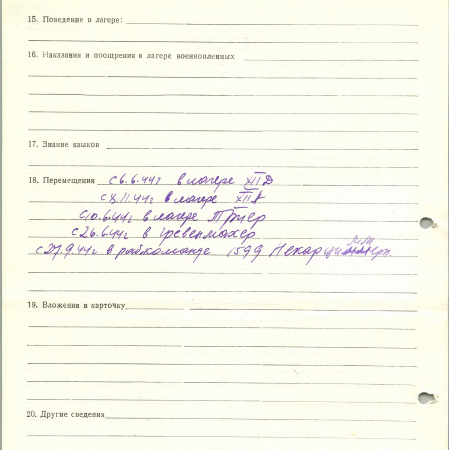 15. Поведение в лагере:
16. Наказания и поощрения в лагере военнопленных
17. Знание языков
18. Перемещения с 6.6.44г в лагере XII D
с 3.11.44г в лагере XII A
с 10.6.44г в лагере Трир
с 26.6.44г в Гревенмахер
с 27.9.44г в рабкоманде 1599
19. Вложения в карточку
20. Другие сведения